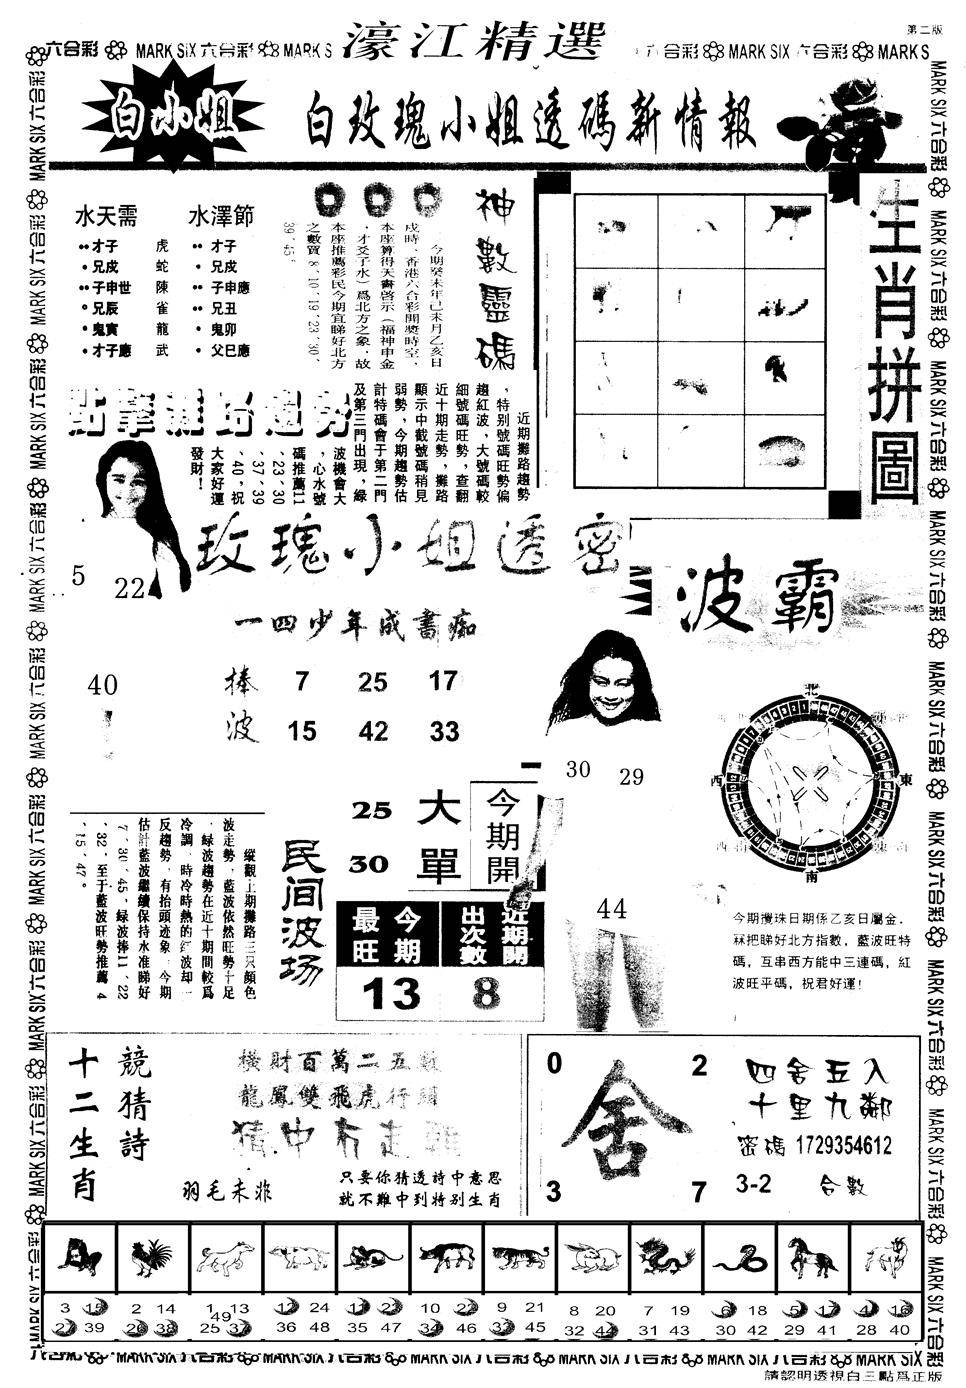 第二版
濠江精選
六合彩 MARK SIX 六合彩 MARK S
六合彩 MARK SIX 六合彩 MARK S
白小姐
白玫瑰小姐透碼新情報
水天需
水澤節
才子 虎
兄戌 蛇
子申世 陳
兄辰 雀
鬼寅 龍
才子應 武
才子
兄戌
子申應
兄丑
鬼卯
父巳應
神數靈碼
今期癸未年己未月乙亥日
戌時、香港六合彩開獎時空，
本座算得天書啓示（福神申金
，才爻子水）爲北方之象，故
本座推薦彩民今期宜睇好北方
之數買8、10、19、23、30、
39、45。
生肖拼圖
點擊攤路趨勢
近期攤路趨勢
，特别號碼旺勢偏
趨紅波，大號碼較
細號碼旺勢，查翻
近十期走勢，攤路
顯示中截號碼稍見
弱勢，今期趨勢估
計特碼會于第二門
及第三門出現，綠
波機會大
，心水號
碼推薦11
、23、30
、37、39
、40，祝
大家好運
發財！
玫瑰小姐透密
5
22
一四少年成書痴
40
捧 7 25 17
波 15 42 33
波霸
30
29
44
北
西
東
南
今期攪珠日期係乙亥日屬金，
冧把睇好北方指數，藍波旺特
碼，互串西方能中三連碼，紅
波旺平碼，祝君好運！
縱觀上期攤路三只顏色
波走勢，藍波依然旺勢十足
，緑波趨勢在近十期間較爲
冷調，時冷時熱的紅波却一
反趨勢，有抬頭迹象，今期
估計藍波繼續保持水准睇好
7、30、45，緑波捧11、22
、32，至于藍波旺勢推薦4
、15、47。
民间波场
25 大
30 單
今期開
今期最旺
近期開出次數
13
8
十二生肖
競猜詩
橫財百萬二五數
龍鳳雙飛虎行頭
猜中
羽毛未非
只要你猜透詩中意思
就不難中到特别生肖
0
2
舍
3
7
四舍五入
十里九鄰
密碼 1729354612
3-2 合數
3 15 27 39
2 14 26 38
1 13 49 25 37
12 24 36 48
11 23 35 47
10 22 34 46
9 21 33 45
8 20 32 44
7 19 31 43
6 18 30 42
5 17 29 41
4 16 28 40
六合彩 MARK SIX 六合彩 MARK SIX 六合彩 MARK SIX 六合彩 MARK SIX 六合彩 MARK SIX
請認明透視白三點爲正版